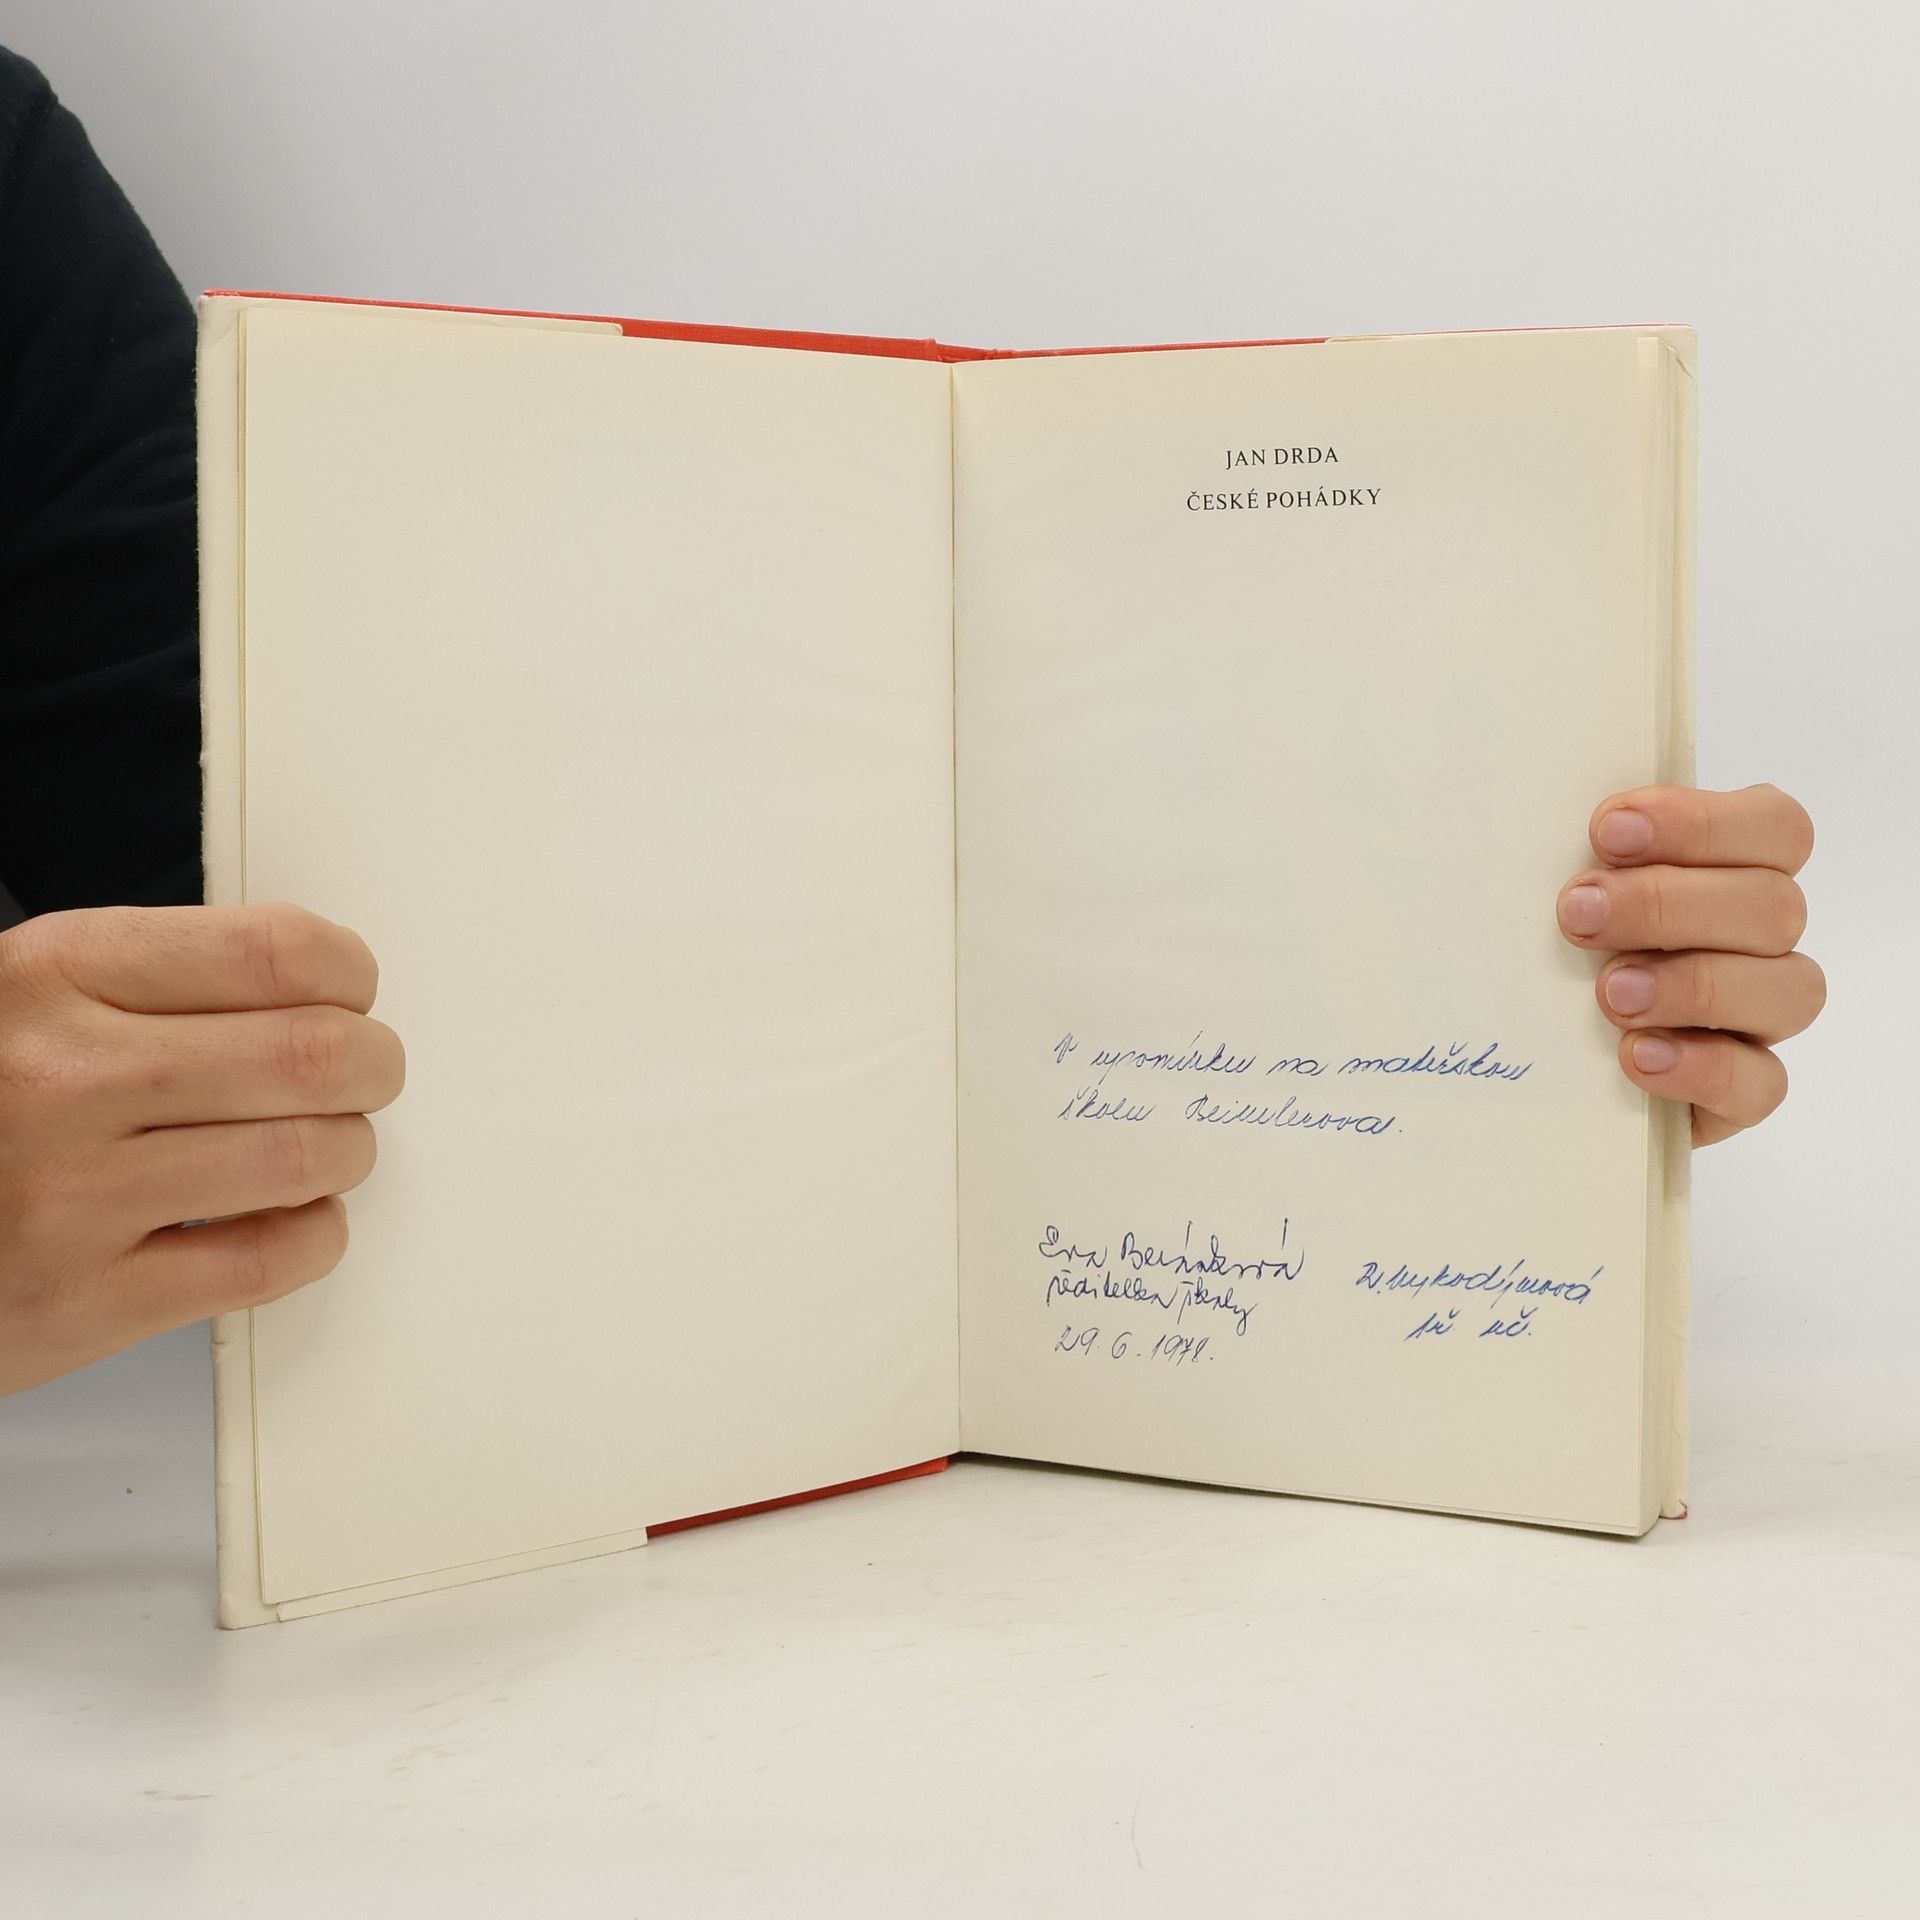 JAN DRDA
ČESKÉ POHÁDKY
V upomínku na mateřskou
školu Beimlerova.
Eva Beránková
ředitelka školy
29. 6. 1978.
Vykodýmová
tř. uč.